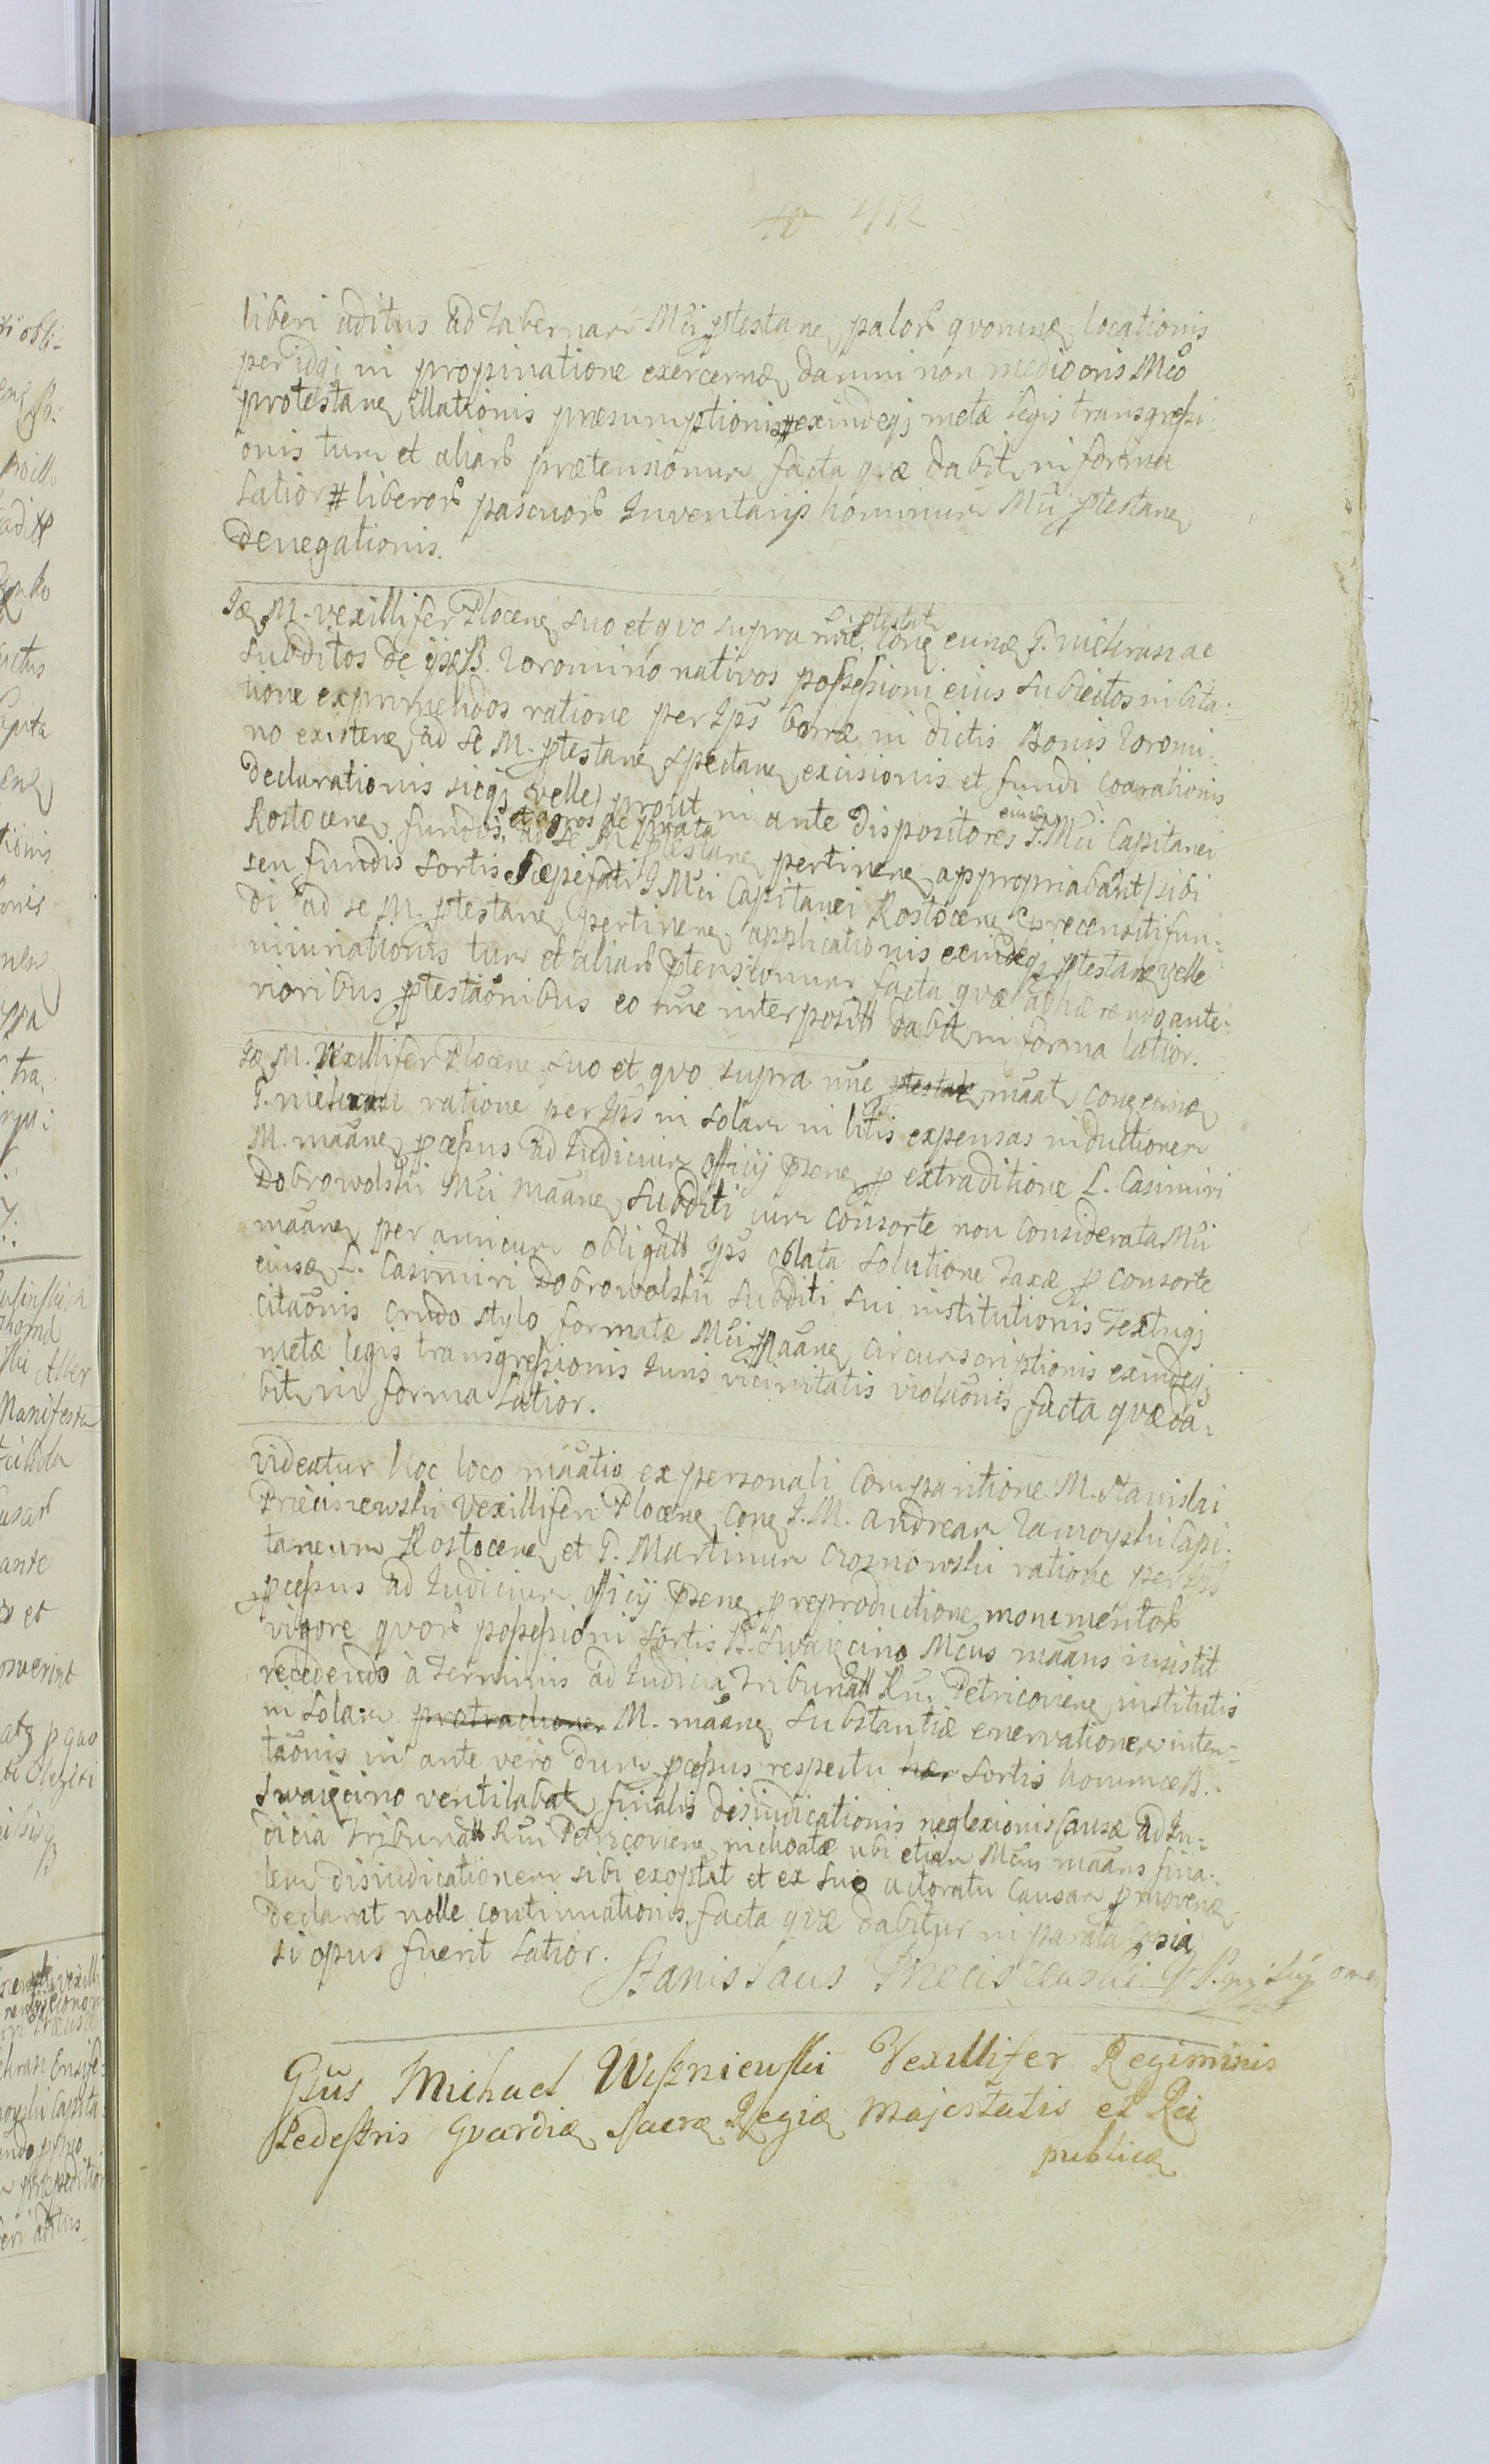 412
liberi aditus ad Tabernam Mci ptestane palorb quorumve locationis
per idq; in propinatione exercenæ damni non mediocris Mco
protestane illationis præsumptionis # exindeq; metæ legis transgressi:
onis tum et aliarb prætensionum facta quæ dabit in forma
latior # liberorb pascuorb Inventarijs hominum Mci ptestane
denegationis.
M. Vexillifer Plocene suo et quo supra nne ptestat cone eund G. ac
subditos de Zoromino nativos possessioni eius subiectos in cita:
tione exprimendos ratione per Ips borræ in dictis Bonis Zoromi:
no existene ad se M. ptestane spectane excisionis et fundi coarationis
declarationis sieq; velle prout in ante dispositores eiusd I. Mci Capitanei
Rostocene fundos et agros ac prata ad se M. ptestane pertinene appropriabant sibi
seu fundis sortis sæpefati I Mci Capitanei Rostocene precensiti fun:
di ad se M. ptestane pertinene applicationis exindeq; ptestane velle
iniuriationis tum et aliarb ptensionum facta quæ adhærendo ante:
rioribus ptestaonibus eo nne interposit dabit in forma latior.
M. Vexillifer Plocene suo et quo supra nne ptestat maat cone eund
G. ratione per Ips in solam in litis expensas inductionem
M. maane pcessus ad Iudicium officij psene p extraditione L. Casimiri
Dobrowolski Mci maane subditi cum consorte non considerata Mci
maane per amicum obligati Ips oblata solutione taxæ p consorte
eiusd L. Casimiri Dobrowolski subditi sui institutionis Textuq;
citaonis crudo stylo formatæ Mci Maane circumscriptionis exindeq;
metæ legis transgressionis Iuris vicinitatis violaonis facta quæ da:
bit in forma latior.
videatur hoc loco maatio ex personali comparitione M. Stanislai
Trzeciszewski Vexilliferi Plocene cone I. M. Andream Zamoyski Capi:
taneum Rostocene et G. Martinum Crosnowski ratione per Ips
pcessus ad Iudicium officij psene p reproductione monumentorb
vigore quorb possessioni sortis B. Swaięcino Mcus maans insistit
recedendo à Terminis ad Iudicia Tribunall Rni Petricoviene institutis
in solam protractionem M. maane substantiæ enervationem inten:
taonis in ante vero dum pcessus respectu hær sortis honum B.
Swaięcino ventilabat finalis disiudicationis neglexionis Causæ ad Iu:
dicia Tribunall Rni Petricoviene inchoatæ ubi etiam Mcus maans fina:
lem disiudicationem sibi exoptat et ex suo actoratu causam pmovene
declarat nolle continuationis facta quæ dabitur in parata copia
si opus fuerit latior.
Stanislaus Trzeciszewski
Gsus Michael Wiszniewski Vexillifer Regiminis
Pedestris Gvardiæ Sacræ Regiæ Majestatis et Rei
publicæ